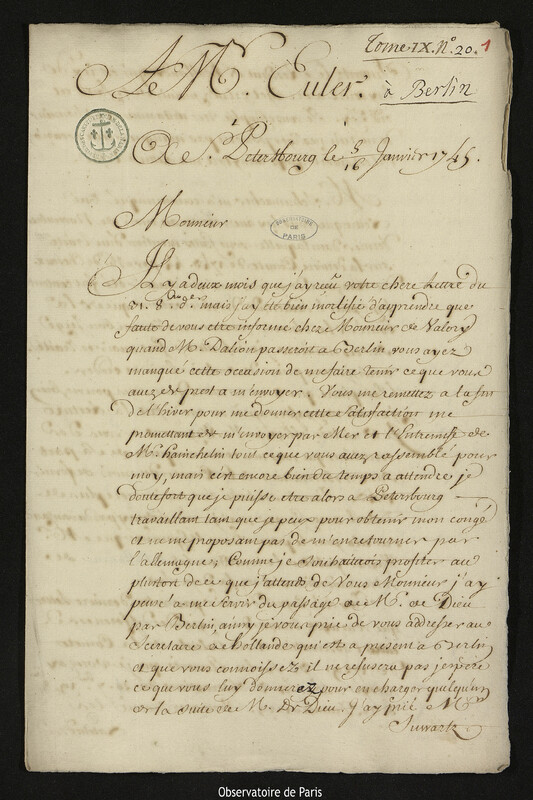 Tome IX. N.º 20. 1
A M.r Euler. à Berlin
A S.t Petersbourg le 5/16 Janvier 1745.
Monsieur
OBSERVATOIRE DE PARIS
Il y a deux mois que j'ay reçu votre chere Lettre du
31. 8.bre d.er mais j'ay eté bien mortifié d'apprendre que
faute de vous etre informé chez Monsieur de Valory
quand M. Dalion passeroit a Berlin vous ayez
manqué cette occasion de me faire tenir ce que vous
aviez de prest a m'envoyer. Vous me remettez a la fin
de l'hiver pour me donner cette satisfaction me
promettant de m'envoyer par Mer et l'Entremise de
M. hanichelin tout ce que vous avez rassemblé pour
moy, mais c'est encore bien du temps a attendre je
doute fort que je puisse etre alors a Peterbourg
travaillant tant que je peux pour obtenir mon congé
et ne me proposant pas de m'en retourner par
l'allemagne; Comme je souhaiterois profiter au
plustost de ce que j'attends de Vous Monsieur j'ay
pensé a me servir du passage de M.r de Dieu
par Berlin, ainsy je vous prie de vous addresser au
Secretaire de hollande qui est a present a Berlin
et que vous connoissez il ne refusera pas j'espere
ce que vous luy donnerez pour en charger quelqu'un
de la suite de M. De Dieu. J'ay prié M.r
Suwart
Observatoire de Paris